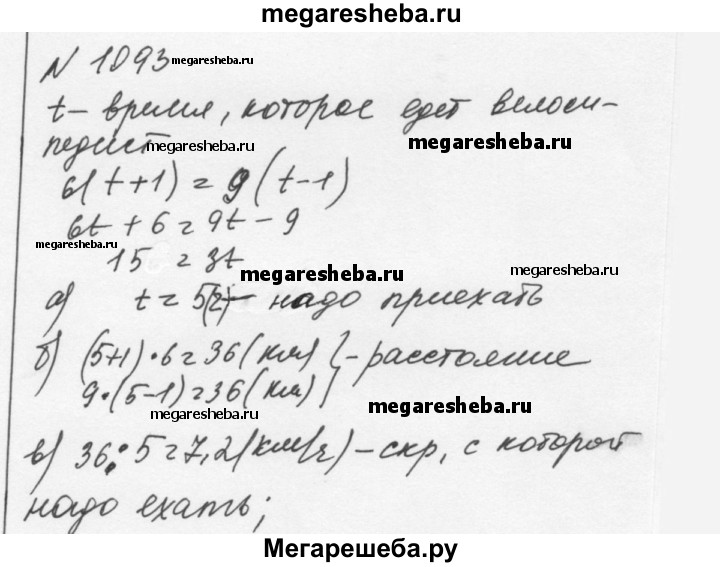 megaresheba.ru
N 1093 megaresheba.ru
t – время, которое едет велоси-
педист megaresheba.ru megaresheba.ru
6(t+1) = 9(t-1)
6t + 6 = 9t - 9
megaresheba.ru
15 = 3t
megaresheba.ru megaresheba.ru
а) t = 5(г) – надо приехать
б) (5+1)·6 = 36 (км) } – расстояние
9·(5-1) = 36 (км)
megaresheba.ru megaresheba.ru
в) 36:5 = 7,2 (км/г) – скр, с которой
надо ехать;
Мегарешеба.ру